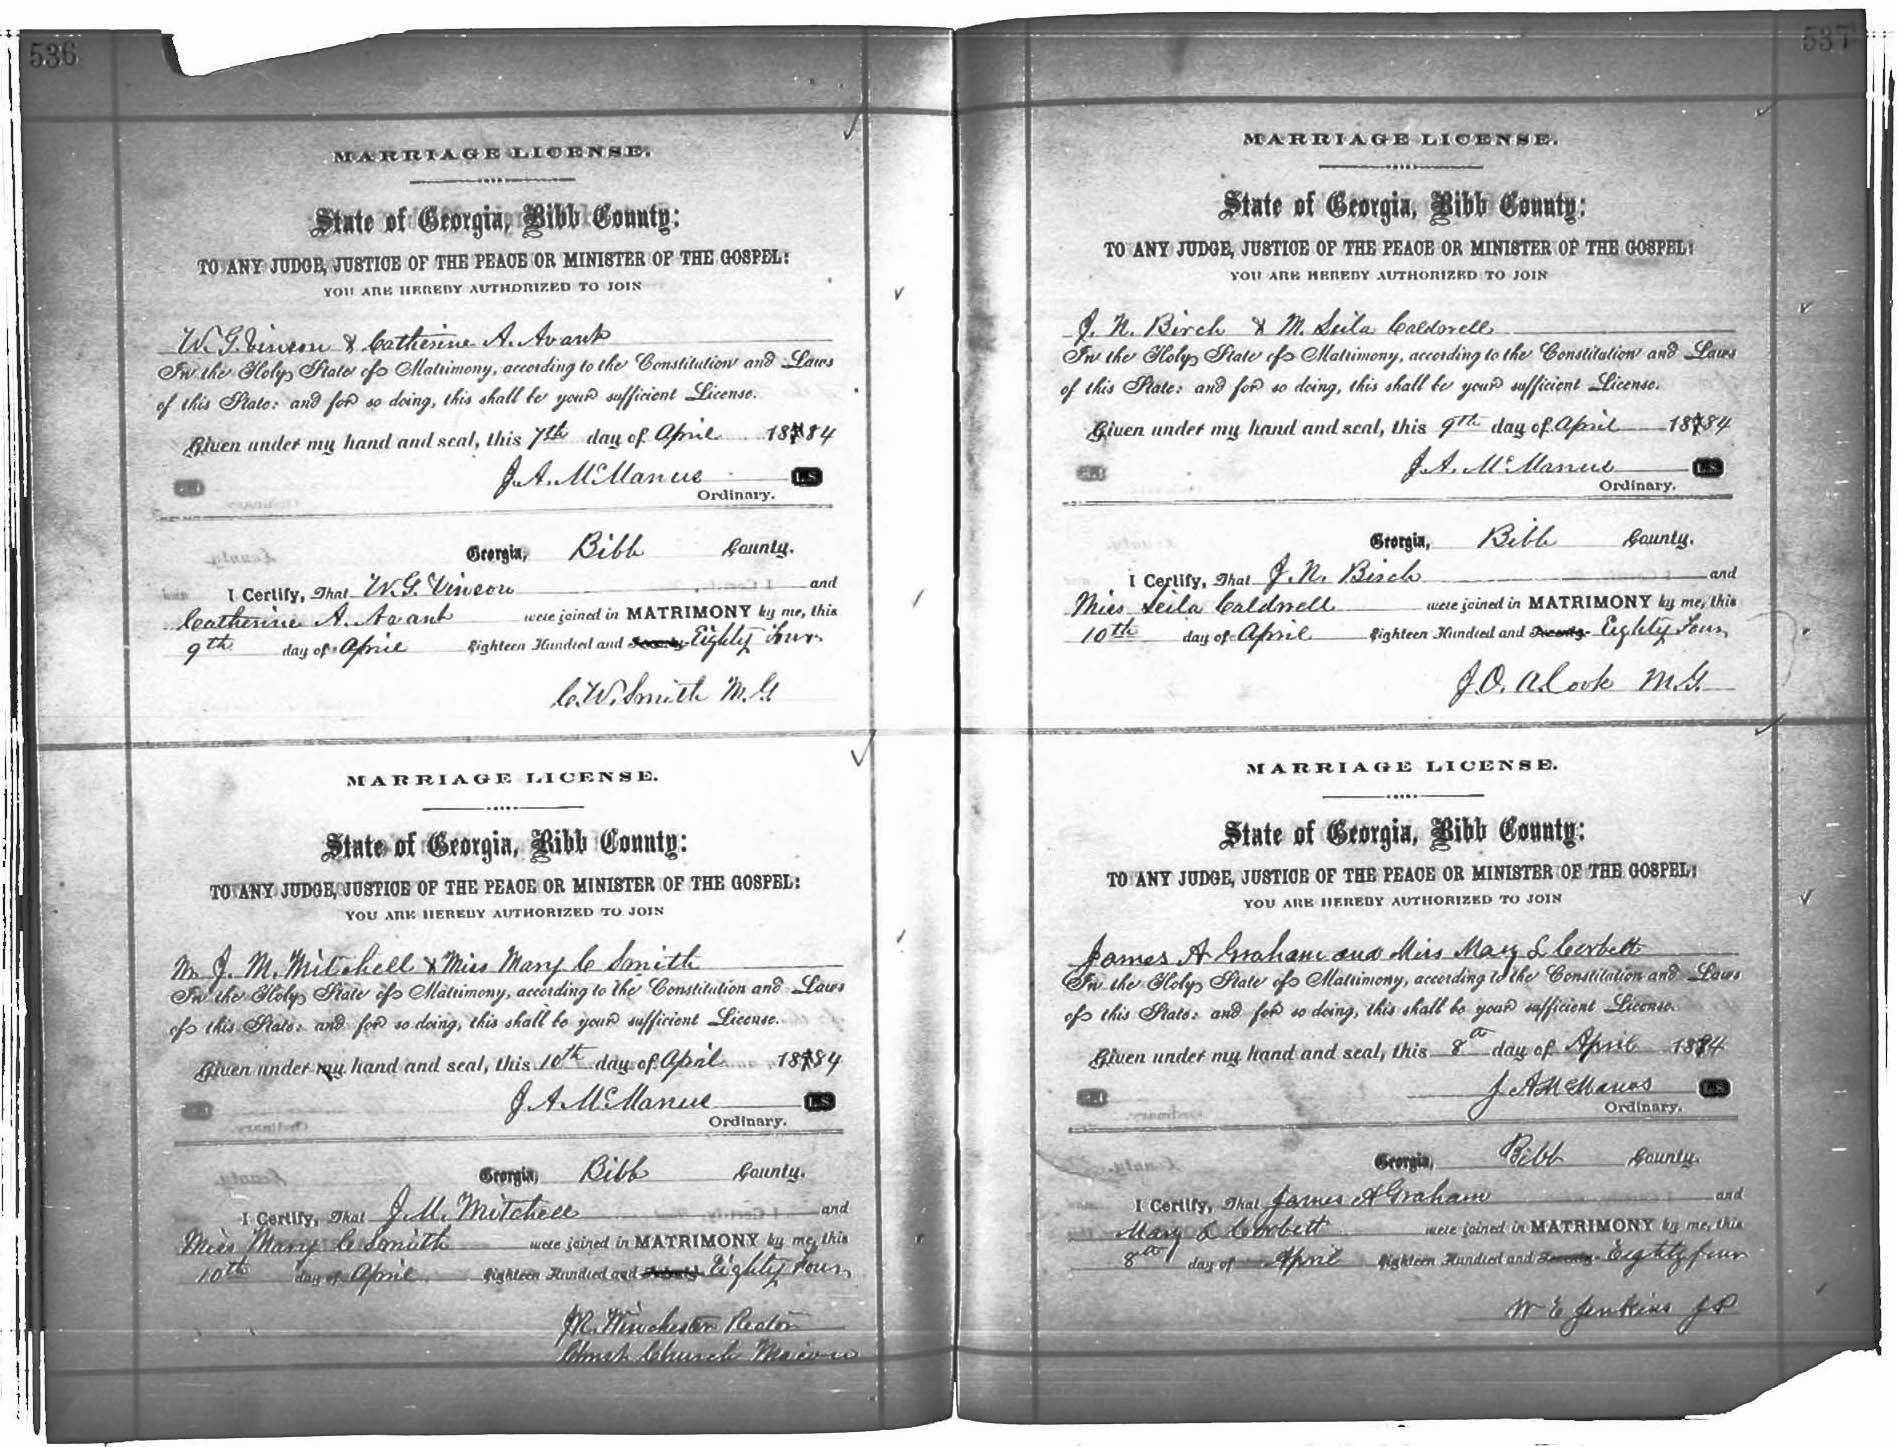 536
MARRIAGE LICENSE.
State of Georgia, Bibb County:
TO ANY JUDGE, JUSTICE OF THE PEACE OR MINISTER OF THE GOSPEL:
YOU ARE HEREBY AUTHORIZED TO JOIN
W. G. Vinson & Catherine A. Avant
In the Holy State of Matrimony, according to the Constitution and Laws
of this State: and for so doing, this shall be your sufficient License.
Given under my hand and seal, this 7th day of April 1884
J. A. McManus L.S.
Ordinary.
Georgia, Bibb County.
I Certify, That W. G. Vinson and
Catherine A. Avant were joined in MATRIMONY by me, this
9th day of April Eighteen Hundred and Seventy Eighty Four
C. W. Smith M. G.
MARRIAGE LICENSE.
State of Georgia, Bibb County:
TO ANY JUDGE, JUSTICE OF THE PEACE OR MINISTER OF THE GOSPEL:
YOU ARE HEREBY AUTHORIZED TO JOIN
Mr J. M. Mitchell & Miss Mary C Smith
In the Holy State of Matrimony, according to the Constitution and Laws
of this State: and for so doing, this shall be your sufficient License.
Given under my hand and seal, this 10th day of April 1884
J. A. McManus L.S.
Ordinary.
Georgia, Bibb County.
I Certify, That J. M. Mitchell and
Miss Mary C Smith were joined in MATRIMONY by me, this
10th day of April Eighteen Hundred and Seventy Eighty Four
Winchester Rector
Christ Church Macon
537
MARRIAGE LICENSE.
State of Georgia, Bibb County:
TO ANY JUDGE, JUSTICE OF THE PEACE OR MINISTER OF THE GOSPEL:
YOU ARE HEREBY AUTHORIZED TO JOIN
J. N. Birch & M. Leila Caldwell
In the Holy State of Matrimony, according to the Constitution and Laws
of this State: and for so doing, this shall be your sufficient License.
Given under my hand and seal, this 9th day of April 1884
J. A. McManus L.S.
Ordinary.
Georgia, Bibb County.
I Certify, That J. N. Birch and
Miss Leila Caldwell were joined in MATRIMONY by me, this
10th day of April Eighteen Hundred and Seventy Eighty Four
J. O. A. Cook M. G.
MARRIAGE LICENSE.
State of Georgia, Bibb County:
TO ANY JUDGE, JUSTICE OF THE PEACE OR MINISTER OF THE GOSPEL:
YOU ARE HEREBY AUTHORIZED TO JOIN
James A Graham and Miss Mary L Corbett
In the Holy State of Matrimony, according to the Constitution and Laws
of this State: and for so doing, this shall be your sufficient License.
Given under my hand and seal, this 8th day of April 1884
J A McManus L.S.
Ordinary.
Georgia, Bibb County.
I Certify, That James A Graham and
Mary L Corbett were joined in MATRIMONY by me, this
8th day of April Eighteen Hundred and Seventy Eighty four
W E Jenkins J P